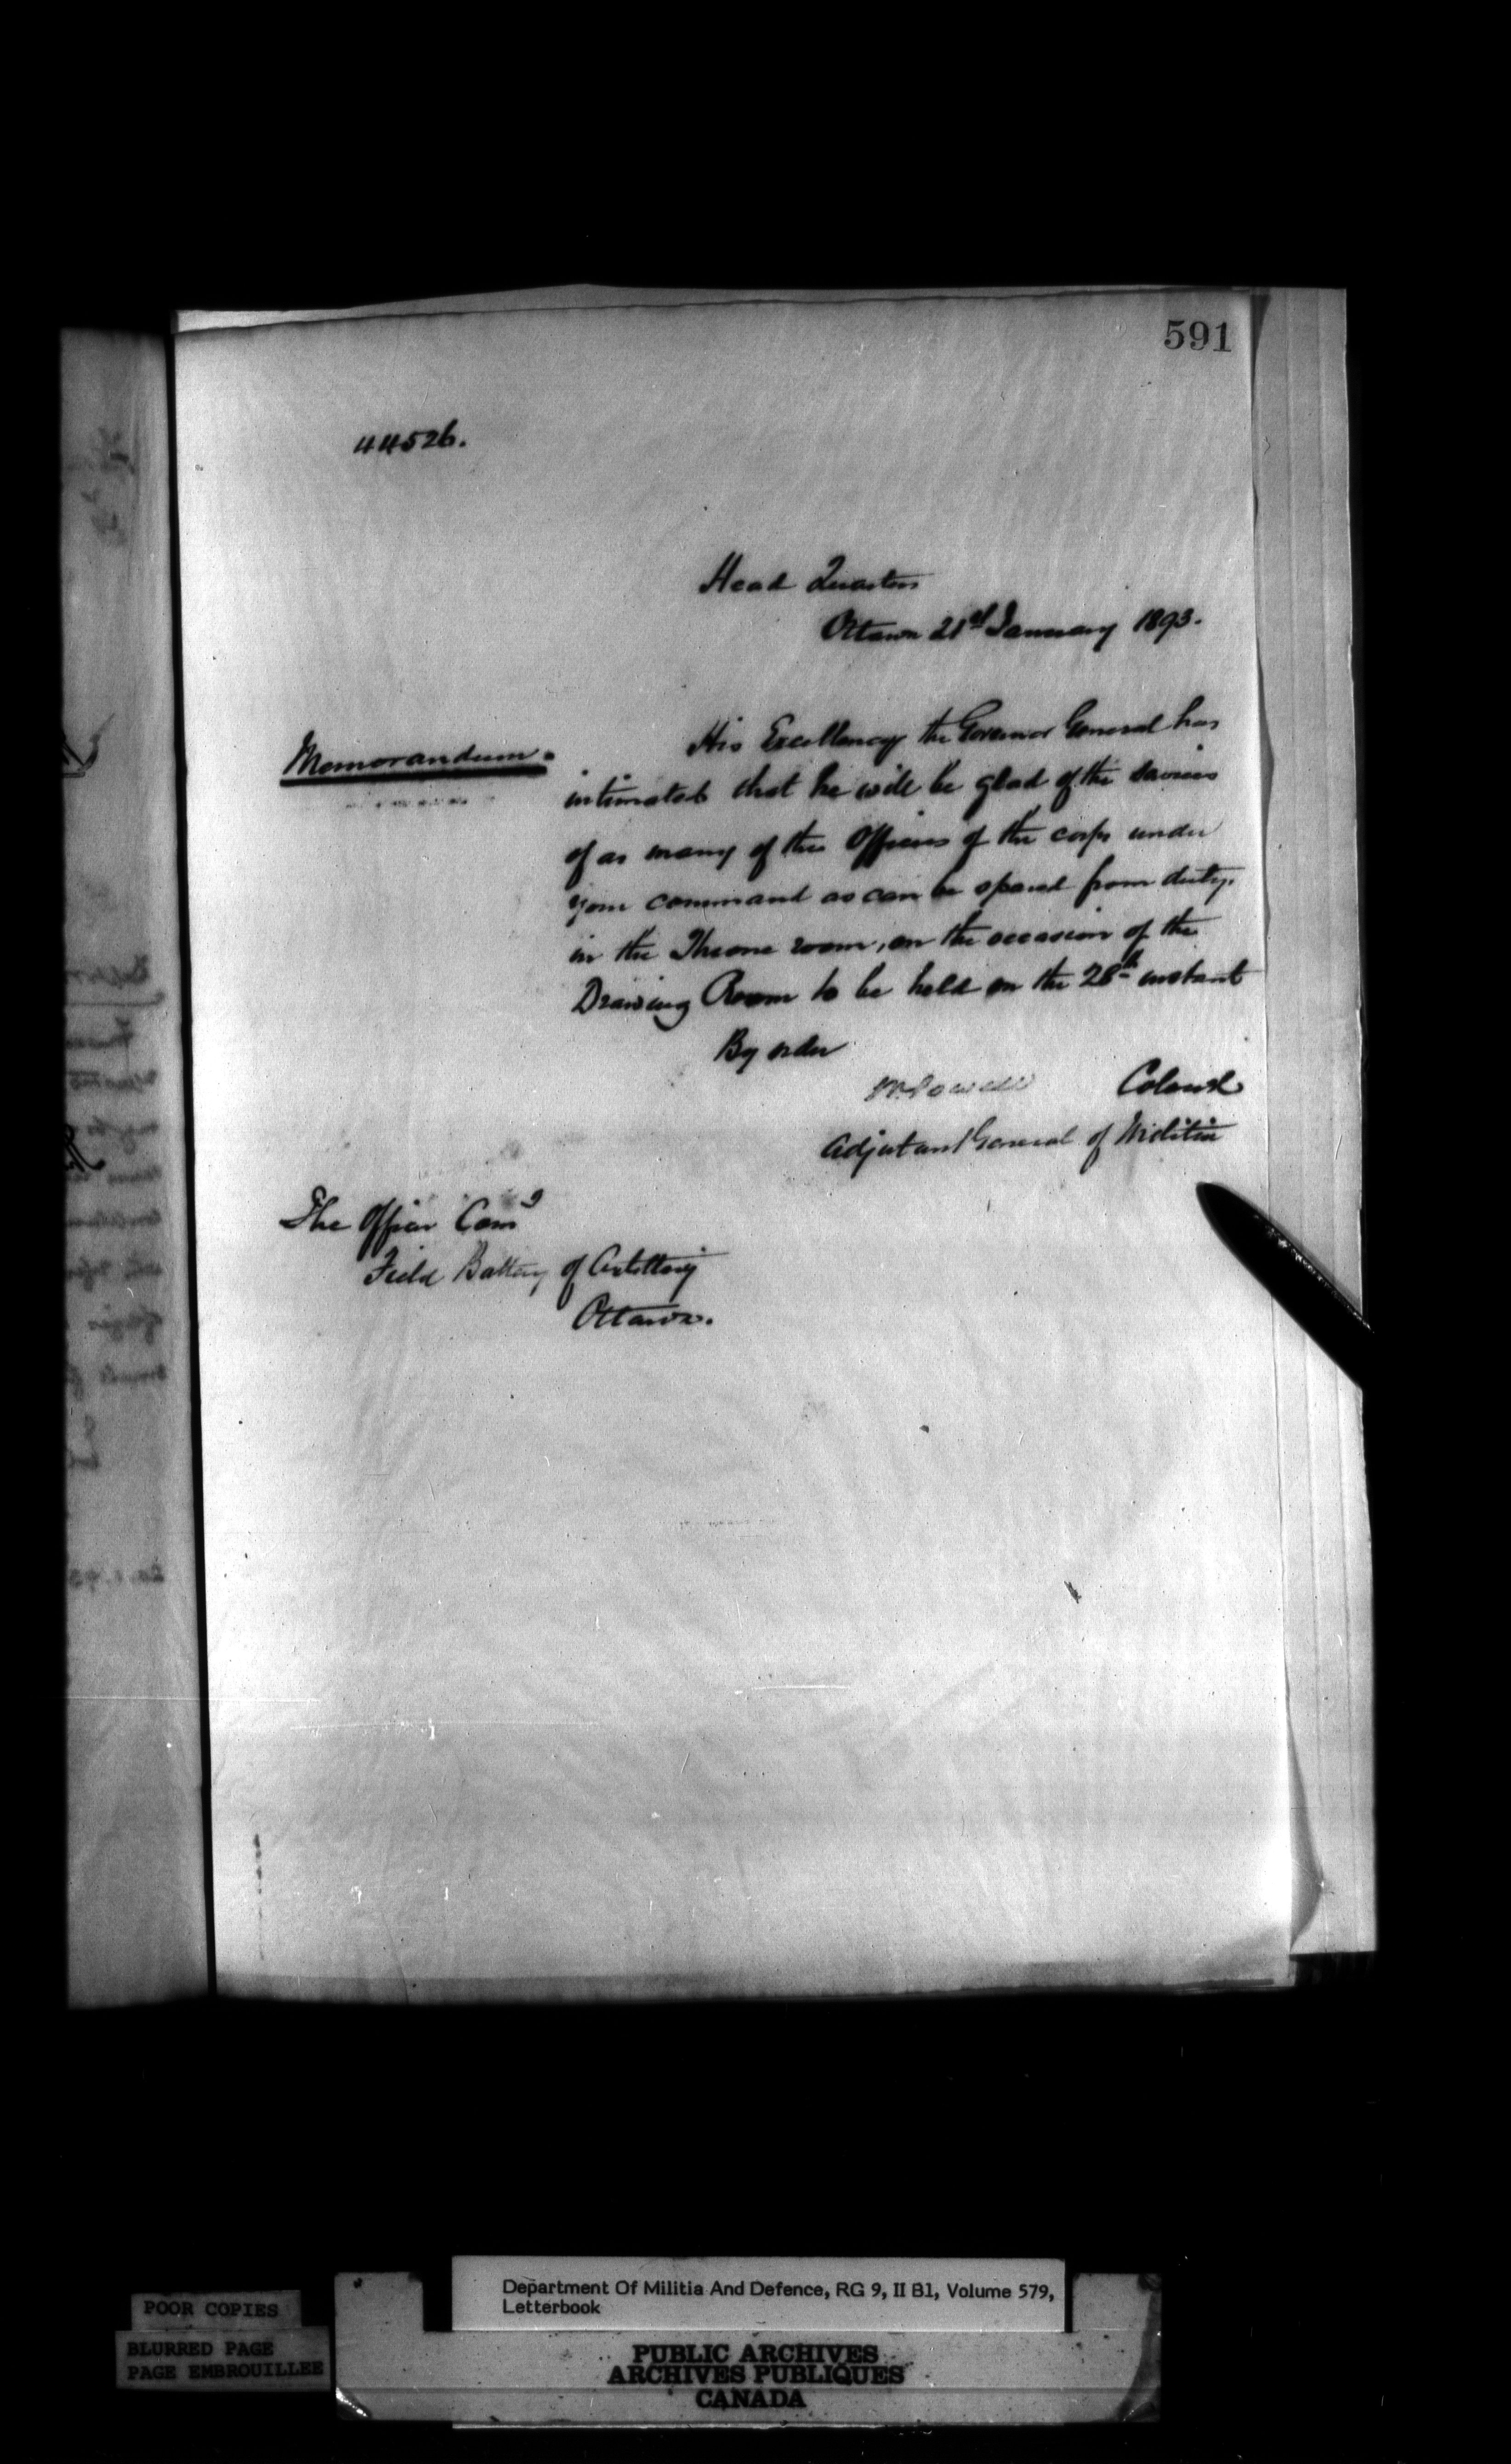 591
44526.
Head Quarters
Ottawa 21st January 1893.
Memorandum.
His Excellency the Governor General has
intimated that he will be glad of the services
of as many of the Officers of the corps under
your command as can be spared from duty,
in the Throne room, on the occasion of the
Drawing Room to be held on the 28th instant
By order
W. Powell Colonel
Adjutant General of Militia
The Officer Comg
Field Battery of Artillery
Ottawa.
POOR COPIES
BLURRED PAGE
PAGE EMBROUILLEE
Department Of Militia And Defence, RG 9, II B1, Volume 579,
Letterbook
PUBLIC ARCHIVES
ARCHIVES PUBLIQUES
CANADA